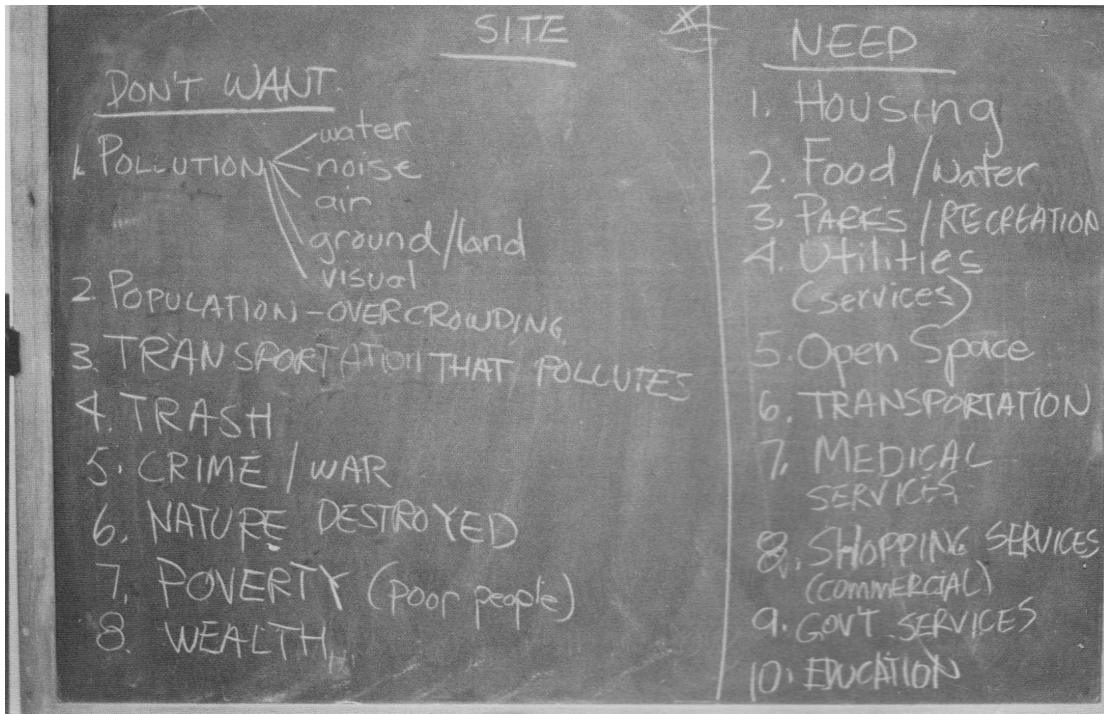 SITE
DON'T WANT.
1. POLLUTION
water
noise
air
ground/land
visual
2. POPULATION - OVERCROWDING
3. TRANSPORTATION THAT POLLUTES
4. TRASH
5. CRIME / WAR
6. NATURE DESTROYED
7. POVERTY (poor people)
8. WEALTH
NEED
1. Housing
2. Food / Water
3. PARKS / RECREATION
4. Utilities
(services)
5. Open Space
6. TRANSPORTATION
7. MEDICAL
SERVICES
8. SHOPPING SERVICES
(COMMERCIAL)
9. GOV'T SERVICES
10. EDUCATION